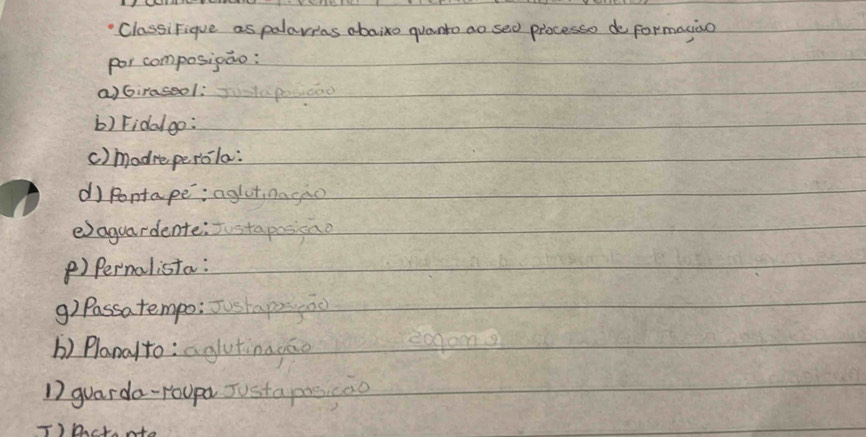 • Classifique as palavras abaixo quanto ao seu processo de formação
por composição:
a) Girassol: Justaposição
b) Fidalgo:
c) madrepérola:
d) Pontapé: aglutinação
e) aguardente: Justaposição
f) Pernalista:
g) Passatempo: Justaposição
h) Planalto: aglutinação
I) guarda-roupa Justaposição